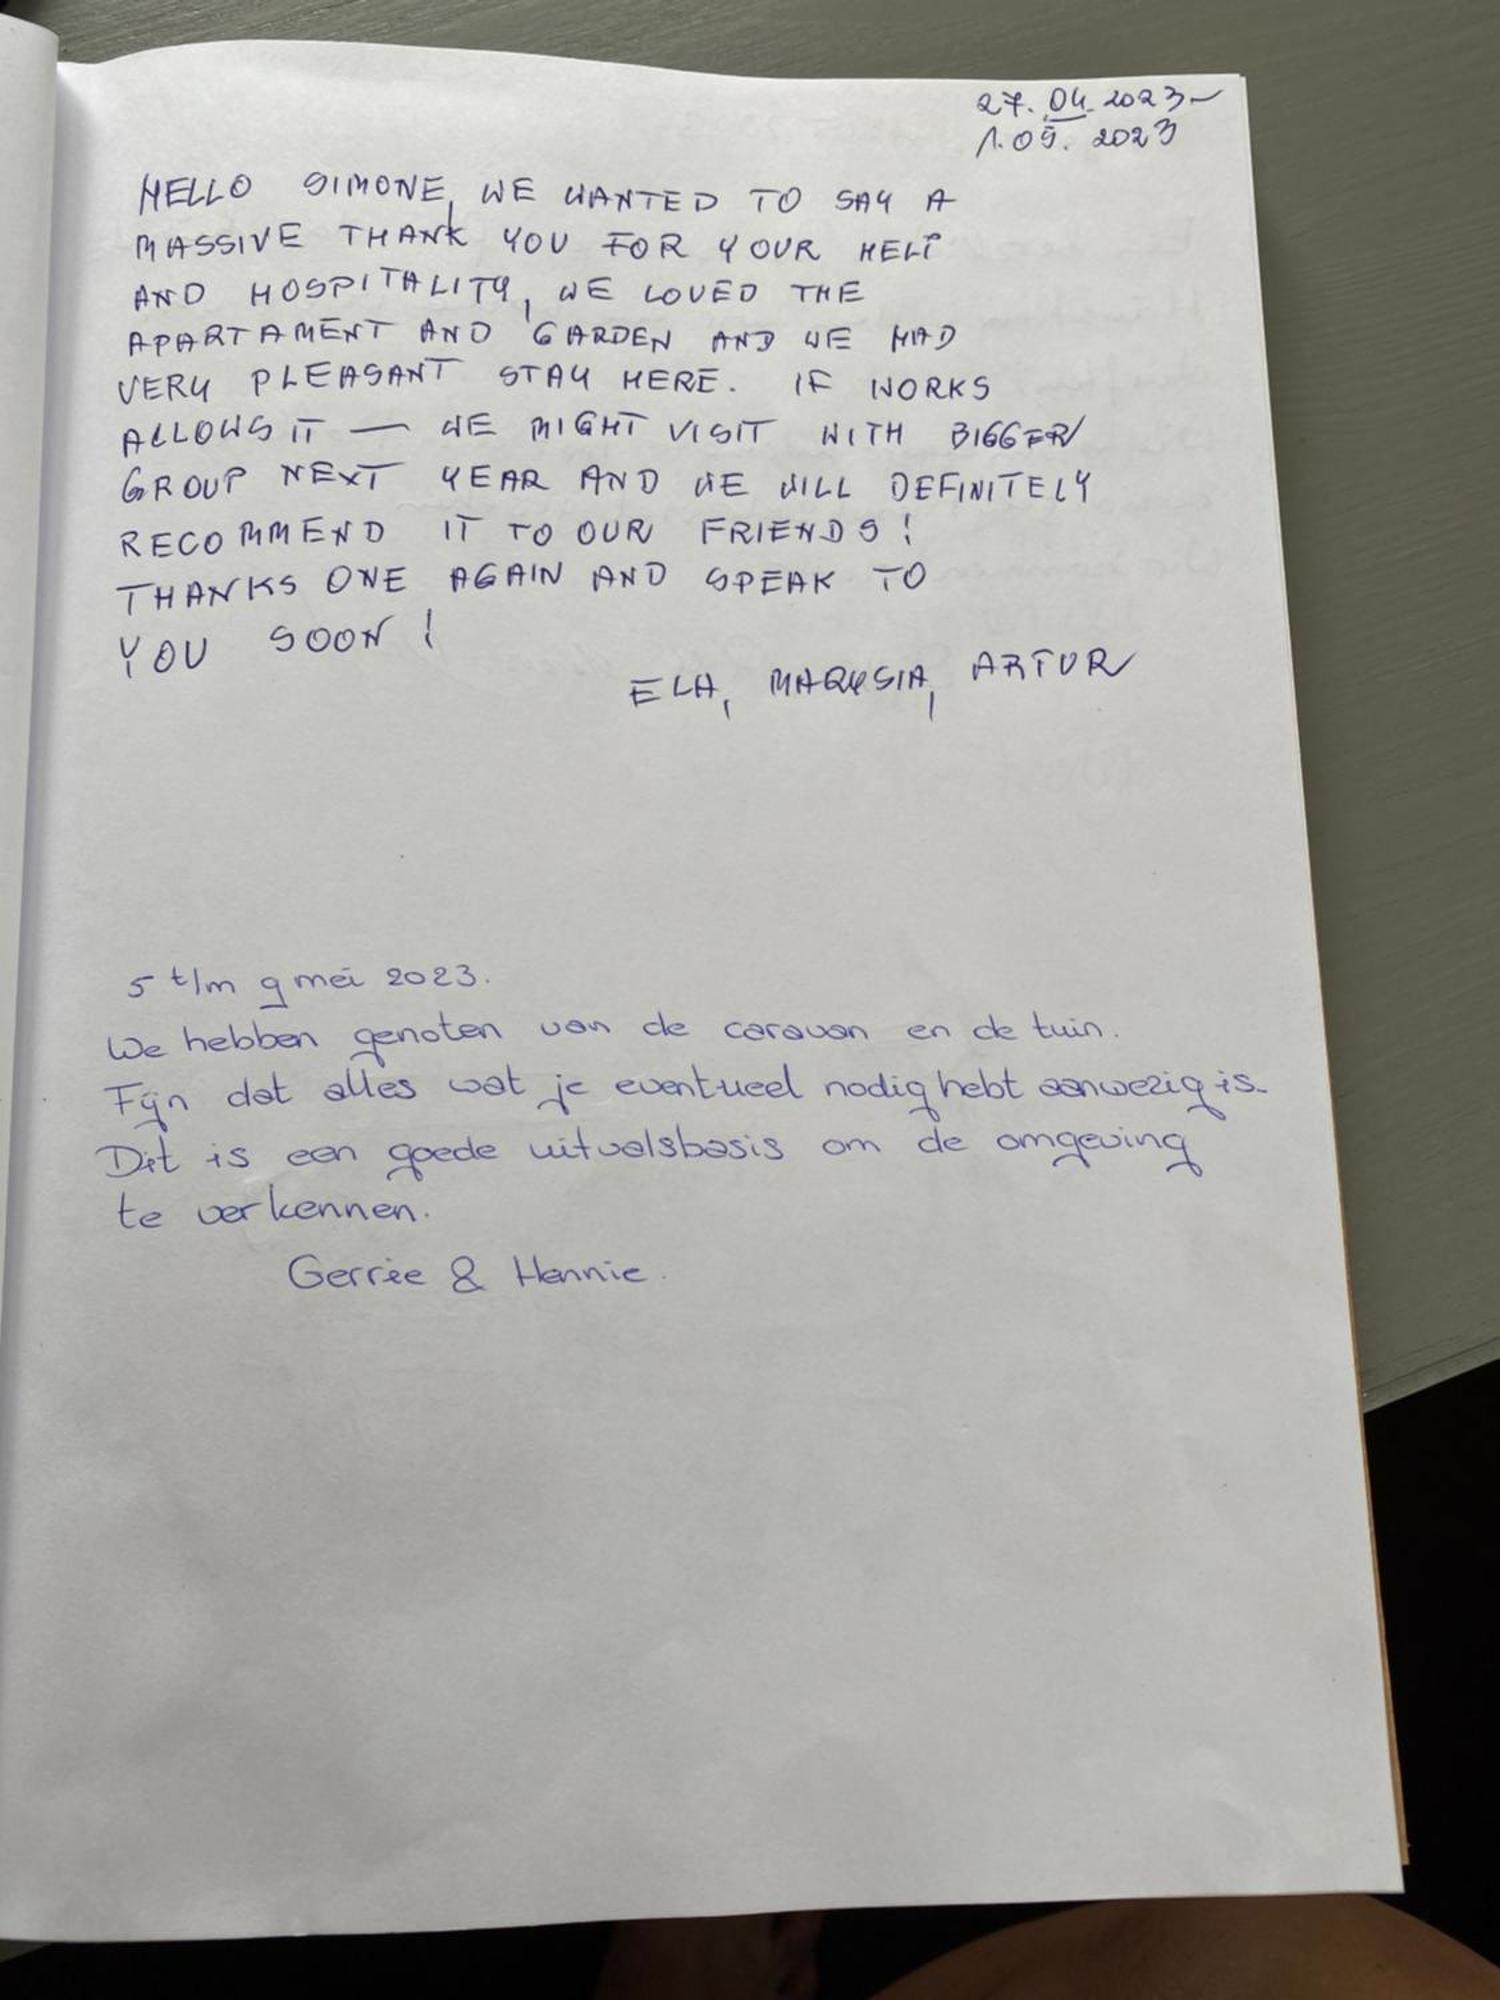 27.04.2023-
1.05.2023
HELLO SIMONE, WE WANTED TO SAY A
MASSIVE THANK YOU FOR YOUR HELP
AND HOSPITALITY, WE LOVED THE
APARTAMENT AND GARDEN AND WE HAD
VERY PLEASANT STAY HERE. IF WORKS
ALLOWS IT — WE MIGHT VISIT WITH BIGGER
GROUP NEXT YEAR AND WE WILL DEFINITELY
RECOMMEND IT TO OUR FRIENDS!
THANKS ONE AGAIN AND SPEAK TO
YOU SOON!
ELA, MARYSIA, ARTUR
5 t/m 9 mei 2023.
We hebben genoten van de caravan en de tuin.
Fijn dat alles wat je eventueel nodig hebt aanwezig is.
Dit is een goede uitvalsbasis om de omgeving
te verkennen.
Gerrie & Hennie.